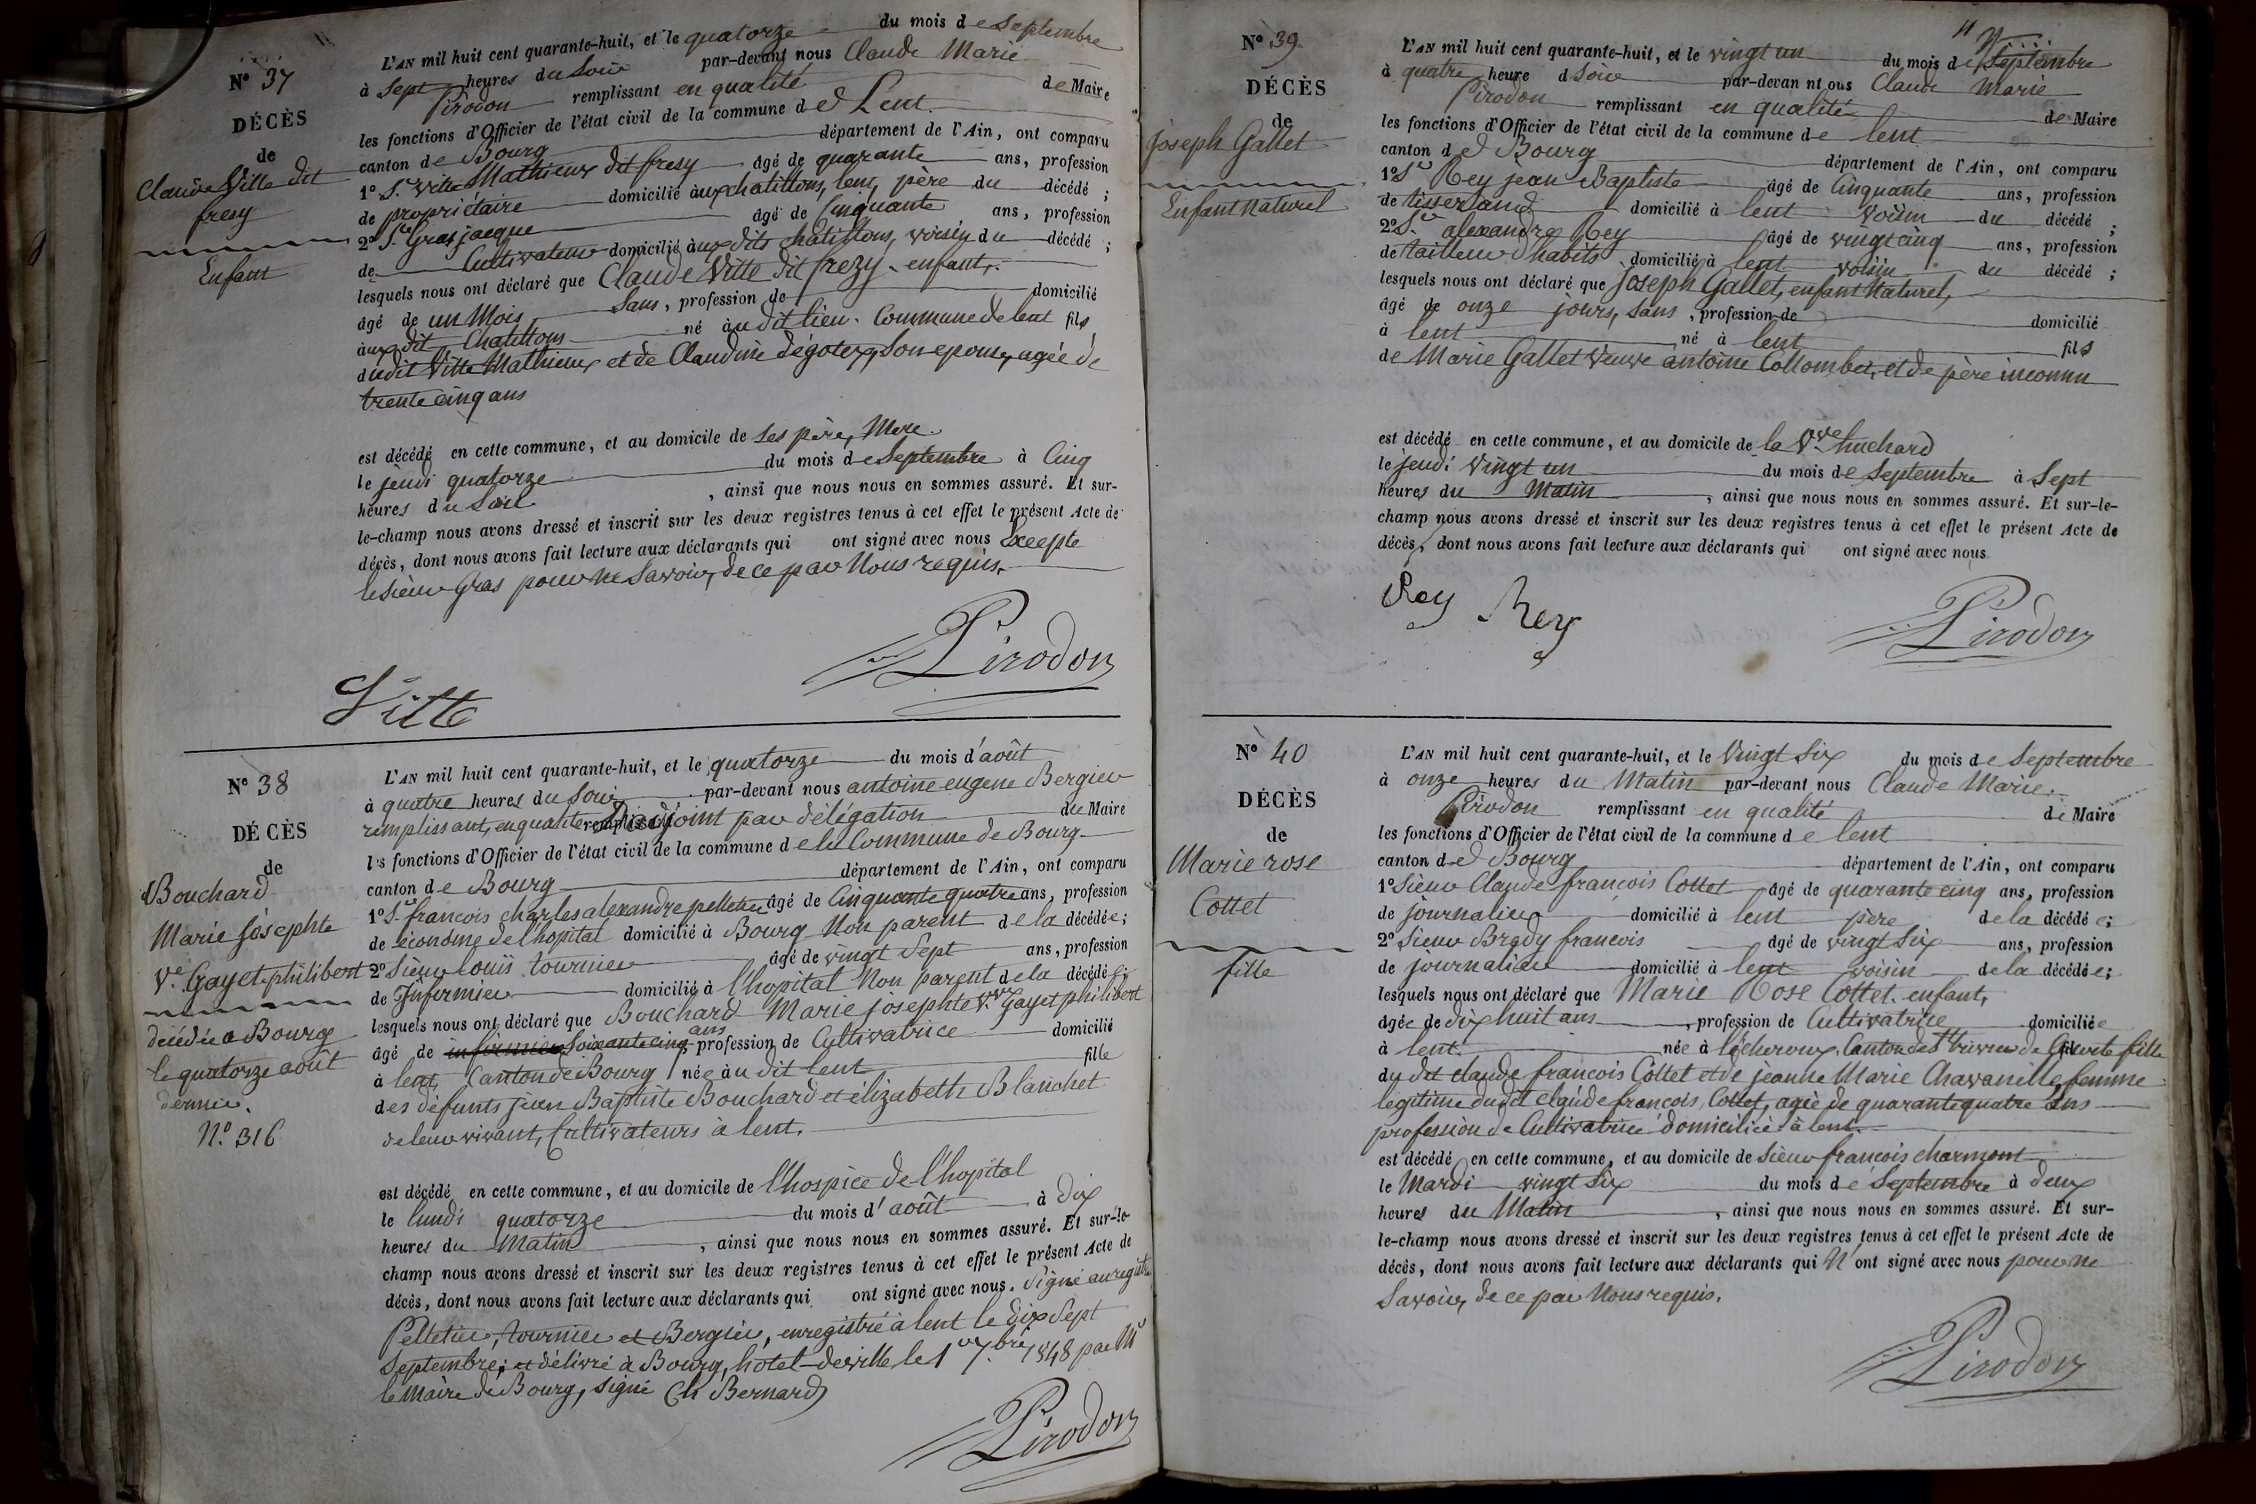 N° 37
DÉCÈS
de
Claude Vitte dit
fresy
Enfant
L'AN mil huit cent quarante-huit, et le quatorze du mois de Septembre
à Sept heures du Soir par-devant nous Claude Marie
Pirodon remplissant en qualité de Maire
les fonctions d'Officier de l'état civil de la commune d e Lent
canton de Bourg département de l'Ain, ont comparu
1° S.r Vitte Mathieux dit fresy âgé de quarante ans, profession
de propriétaire domicilié aux chatillons, lent, père du décédé ;
2° S.r Gras jacque âgé de Cinquante ans, profession
de Cultivateur domicilié aux dits chatillons, voisin du décédé ;
lesquels nous ont déclaré que Claude Vitte dit frezy enfant,
âgé de un Mois Sans, profession de domicilié
aux dit Chatillons né au dit lieu. Commune de lent fils
dudit Vitte Mathieux et de Claudine dégotex, Son epouse, agée de
trente cinq ans
est décédé en cette commune, et au domicile de Ses père, Mere
le jeudi quatorze du mois de Septembre à Cinq
heures du Soir , ainsi que nous nous en sommes assuré. Et sur-
le-champ nous avons dressé et inscrit sur les deux registres tenus à cet effet le présent Acte de
décès, dont nous avons fait lecture aux déclarants qui ont signé avec nous Excepté
le Sieur Gras pour ne Savoir, de ce par Nous requis.
Pirodon
Vitte
N° 38
DÉCÈS
de
Bouchard
Marie Josephte
V.e Gayet philibert
décédée a Bourg
le quatorze août
dernier.
N.° 316
L'AN mil huit cent quarante-huit, et le quatorze du mois d'août
à quatre heures du Soir par-devant nous antoine eugene Bergier
remplissant, en qualité remplissant D'adjoint par délégation du Maire
les fonctions d'Officier de l'état civil de la commune d e la Commune de Bourg
canton de Bourg département de l'Ain, ont comparu
1° S.r francois charles alexandre pelletier âgé de Cinquante quatre ans, profession
de économe de l'hopital domicilié à Bourg Non parent de la décédée;
2° Sieur louis tournier âgé de vingt Sept ans, profession
de Infirmier domicilié à l'hopital Non parent de la décédée;
lesquels nous ont déclaré que Bouchard Marie josephte V.ve Gayet philibert
âgé de infirmier Soixante cinq ans, profession de Cultivatrice domicilié
à lent, Canton de Bourg née au dit lent fille
des défunts jean Baptiste Bouchard et élizabeth Blanchet
de leur vivant, Cultivateurs à lent.
est décédé en cette commune, et au domicile de l'hospice de l'hopital
le lundi quatorze du mois d'août à dix
heures du Matin , ainsi que nous nous en sommes assuré. Et sur-le-
champ nous avons dressé et inscrit sur les deux registres tenus à cet effet le présent Acte de
décès, dont nous avons fait lecture aux déclarants qui ont signé avec nous. Signé au registre
Pelletier, tournier et Bergier, enregistré à lent le dix Sept
Septembre; et délivré à Bourg, hôtel-de-ville le 1er 7.bre 1848 par Mr
le Maire de Bourg, signé Ch Bernard
Pirodon
11
N° 39
DÉCÈS
de
joseph Gallet
Enfant naturel
L'AN mil huit cent quarante-huit, et le vingt un du mois de Septembre
à quatre heure d Soir par-devan nt ous Claude Marie
Pirodon remplissant en qualité de Maire
les fonctions d'Officier de l'état civil de la commune de lent
canton d e Bourg département de l'Ain, ont comparu
1° S.r Rey jean Baptiste âgé de Cinquante ans, profession
de tisserand domicilié à lent voisin du décédé ;
2° S.r alexandre Rey âgé de vingt cinq ans, profession
de tailleur d'habits domicilié à lent voisin du décédé ;
lesquels nous ont déclaré que Joseph Gallet, enfant Naturel,
âgé de onze jours, Sans , profession de domicilié
à lent né à lent fils
de Marie Gallet Veuve antoine Collombet, et de père inconnu
est décédé en cette commune, et au domicile de la V.ve huchard
le jeudi vingt un du mois de Septembre à Sept
heures du Matin , ainsi que nous nous en sommes assuré. Et sur-le-
champ nous avons dressé et inscrit sur les deux registres tenus à cet effet le présent Acte de
décès, dont nous avons fait lecture aux déclarants qui ont signé avec nous
Rey Rey
Pirodon
N° 40
DÉCÈS
de
Marie rose
Cottet
fille
L'AN mil huit cent quarante-huit, et le Vingt Six du mois de Septembre
à onze heures du Matin par-devant nous Claude Marie
Pirodon remplissant en qualité de Maire
les fonctions d'Officier de l'état civil de la commune d e lent
canton d e Bourg département de l'Ain, ont comparu
1° Sieur Claude francois Cottet âgé de quarante cinq ans, profession
de journalier domicilié à lent père de la décédée;
2° Sieur Brady francois âgé de vingt Six ans, profession
de journalier domicilié à lent voisin de la décédée;
lesquels nous ont déclaré que Marie Rose Cottet enfant,
âgée de dix huit ans , profession de Cultivatrice domiciliée
à lent. née à lécheroux, Canton de St trivier de Courte fille
du dit claude francois Cottet et de jeanne Marie Chavanille femme
légitime dudit claude francois, Cottet, agée de quarante quatre Ans
profession de Cultivatrice domiciliée à lent.
est décédé en cette commune, et au domicile de Sieur francois charmont
le Mardi vingt Six du mois de Septembre à deux
heures du Matin , ainsi que nous nous en sommes assuré. Et sur-
le-champ nous avons dressé et inscrit sur les deux registres tenus à cet effet le présent Acte de
décès, dont nous avons fait lecture aux déclarants qui N'ont signé avec nous pour ne
Savoir, de ce par Nous requis.
Pirodon